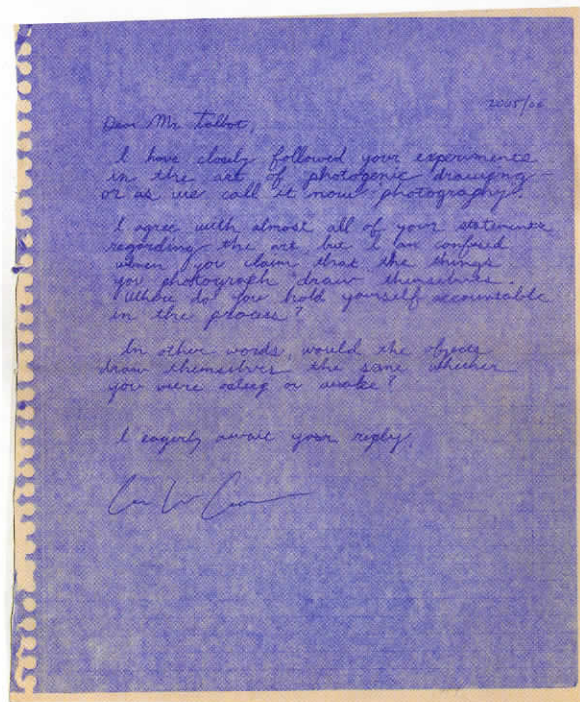 2005/06
Dear Mr. Talbot,
I have closely followed your experiments
in the art of photogenic drawing –
or as we call it now photography.
I agree with almost all of your statements
regarding the art but I am confused
when you claim that the things
you photograph draw themselves.
Where do you hold yourself accountable
in the process?
In other words, would the objects
draw themselves the same whether
you were asleep or awake?
I eagerly await your reply,